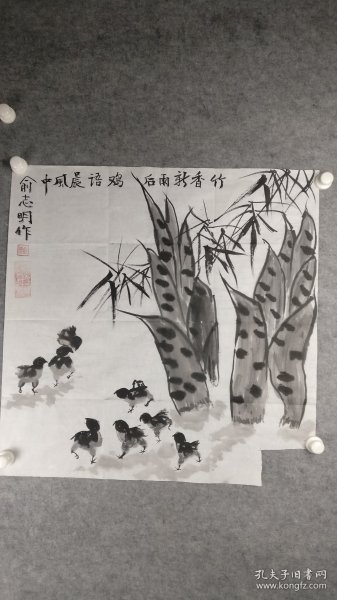 竹香新雨后 鸡语晨风中
俞志明作
孔夫子旧书网
www.kongfz.com